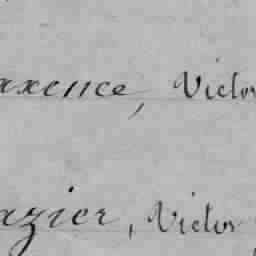 axence, Victor
azier, Victor